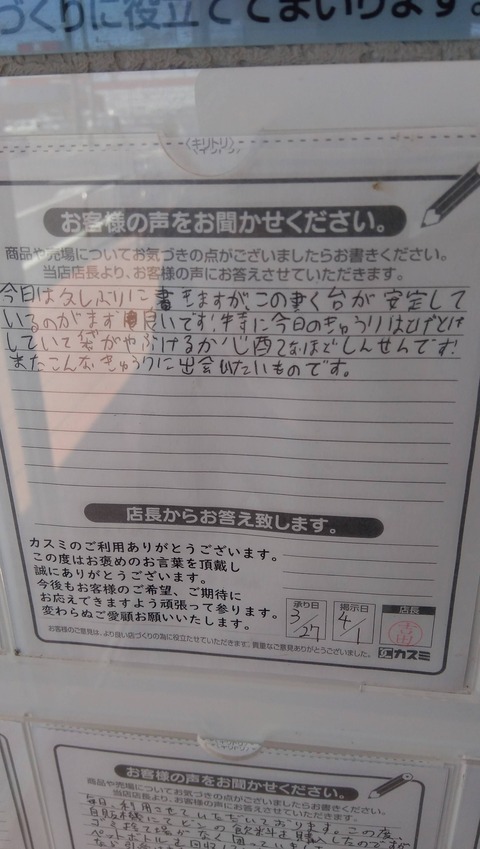 づくりに役立ててまいります。
キリトリ
お客様の声をお聞かせください。
商品や売場についてお気づきの点がございましたらお書きください。
当店店長より、お客様の声にお答えさせていただきます。
今日は久しぶりに書きますが、この書く台が安定して
いるのがまず良いです!特に今日のきゅうりはとげとげ
していて袋がやぶけるかじ酒てなほどしんせんです!
またこんなきゅうりに出会いたいものです。
店長からお答え致します。
カスミのご利用ありがとうございます。
この度はお褒めのお言葉を頂戴し
誠にありがとうございます。
今後もお客様のご希望、ご期待に
お応えできますよう頑張って参ります。
変わらぬご愛顧お願いいたします。
承り日 掲示日 店長
3/27 4/1
お客様のご意見は、より良い店づくりの為に役立たせていただきます。貴重なご意見ありがとうございました。
カスミ
キリトリ
お客様の声をお聞かせください。
商品や売場についてお気づきの点がございましたらお書きください。
当店店長より、お客様の声にお答えさせていただきます。
毎日、利用させていただいております。この度、
自販機にてビンの飲料を購入したのですが
ゴミ捨て場がなく困っていま
ペットボトルを回収